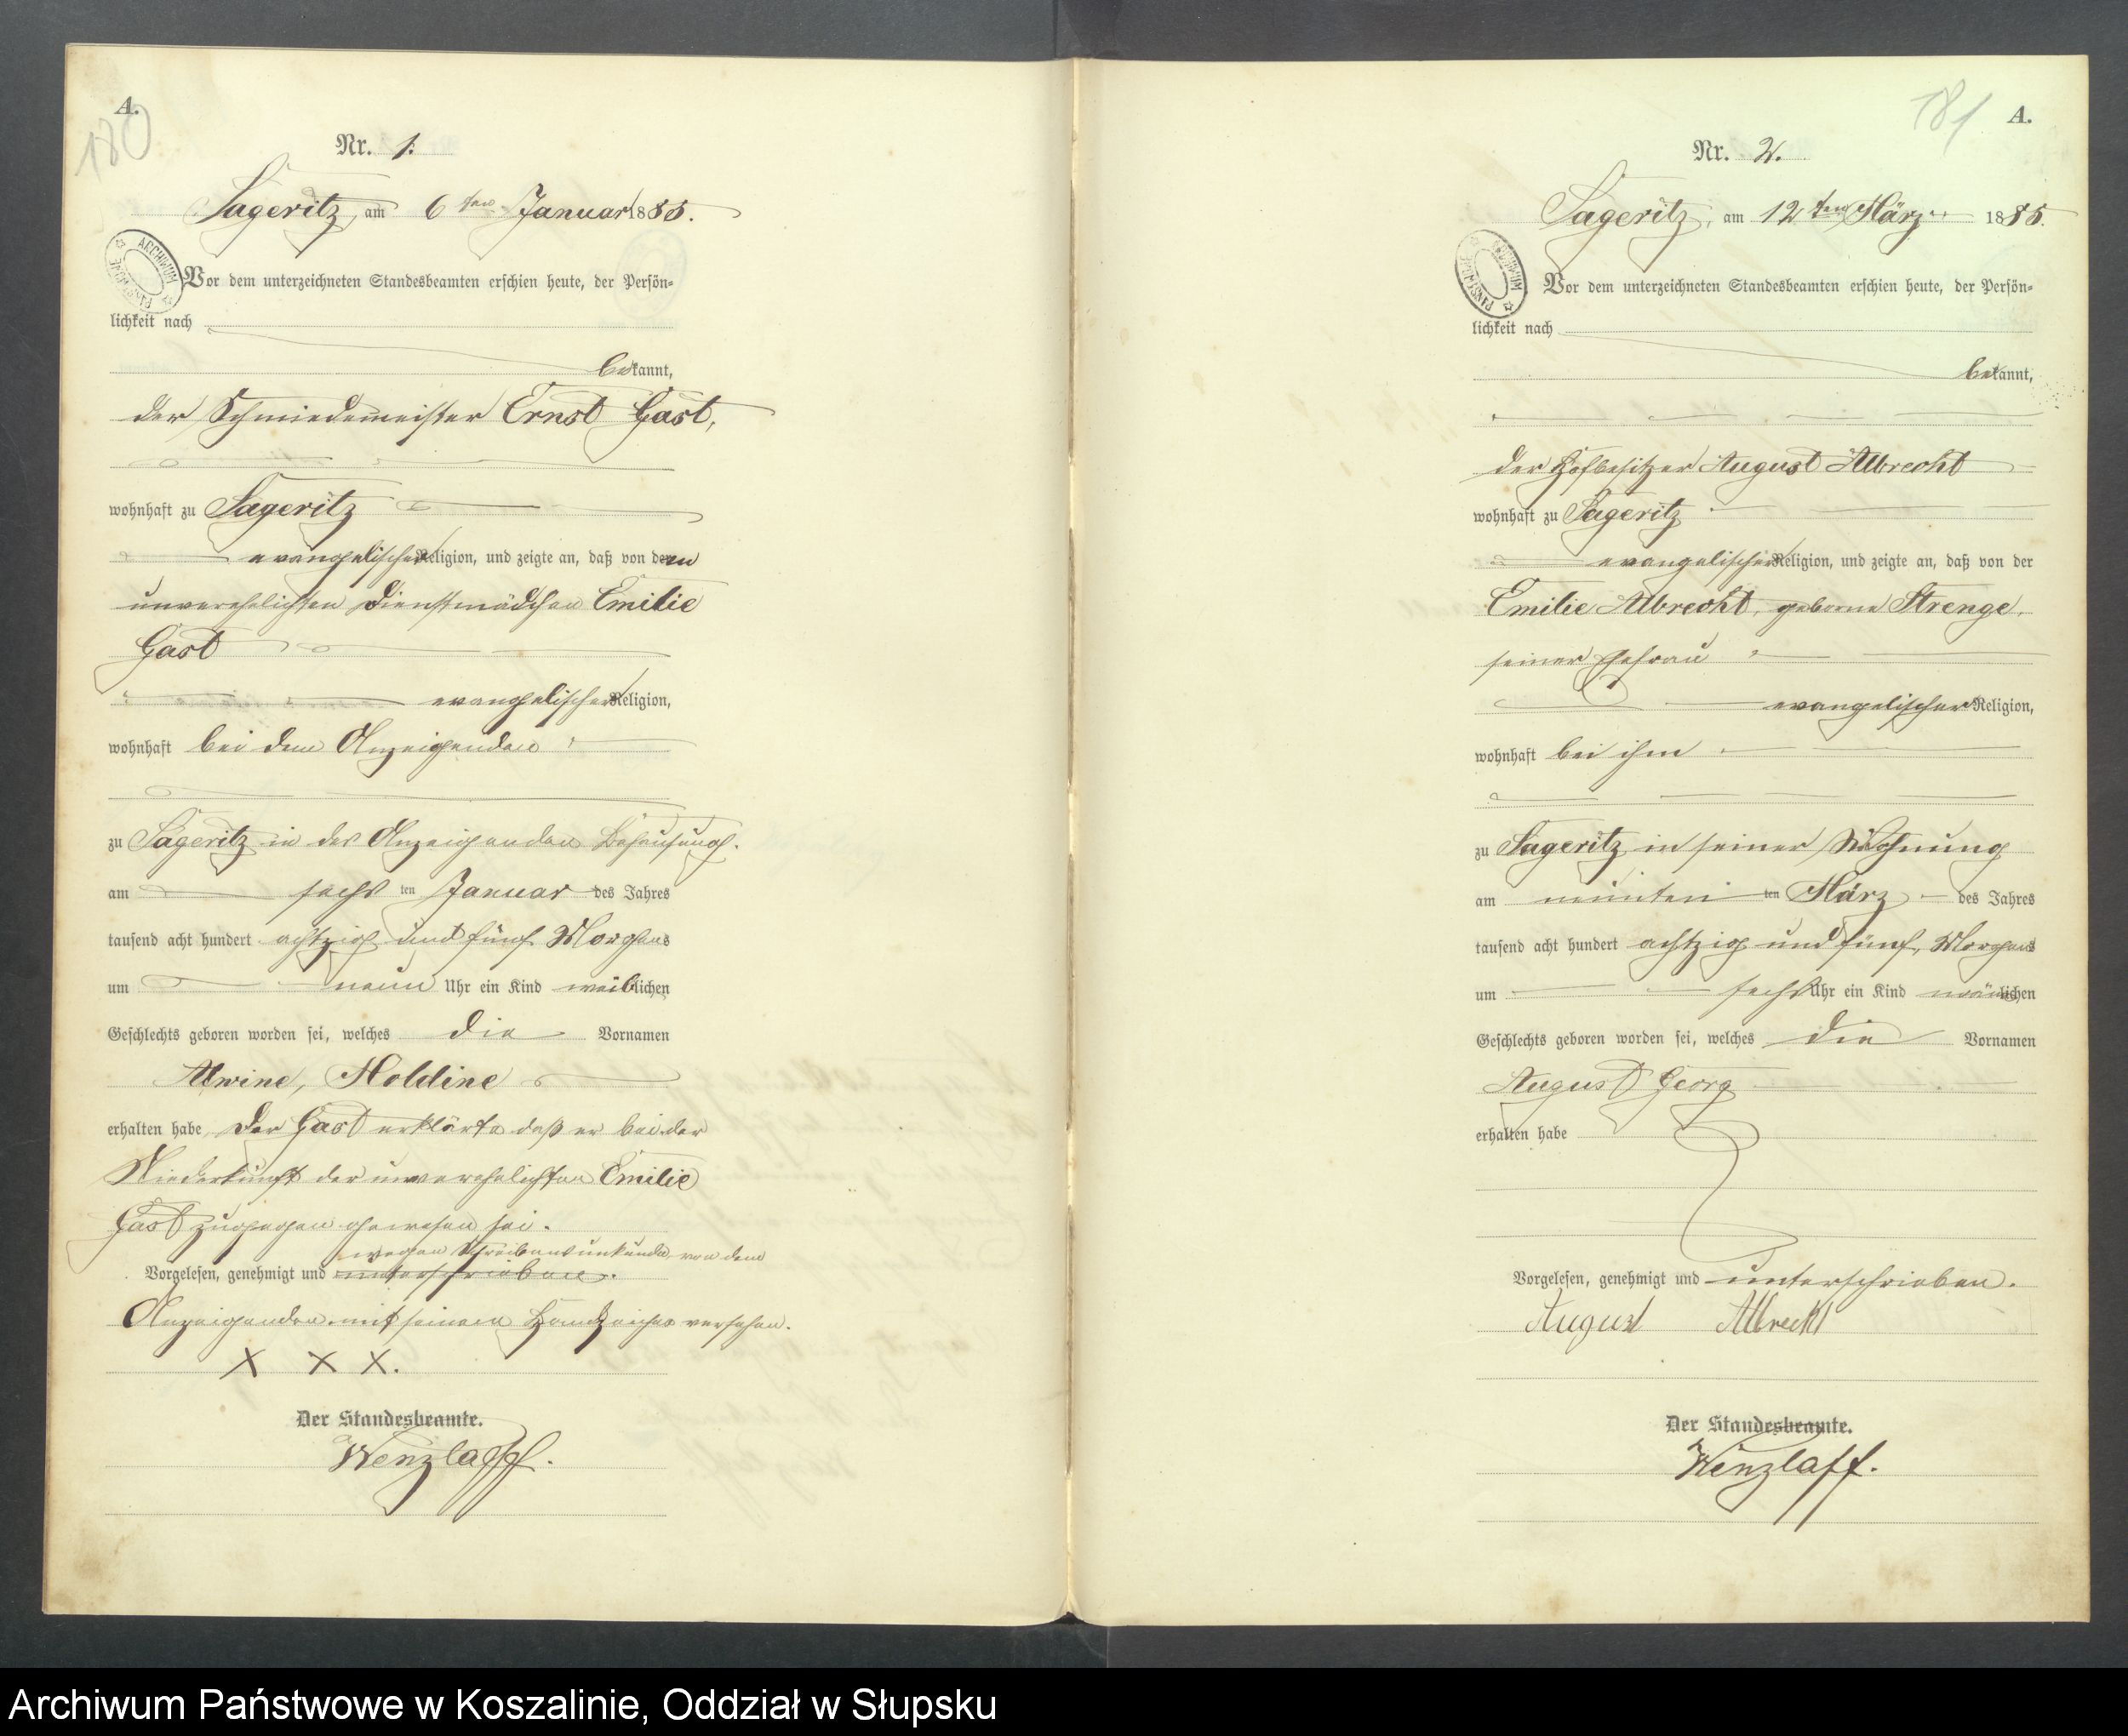 A.
180
Nr. 1.
Sageritz, am 6ten Januar 1885.
ARCHIWUM PAŃSTWOWE
Vor dem unterzeichneten Standesbeamten erschien heute, der Persön-
lichkeit nach
bekannt,
der Schmiedemeister Ernst Gast,
wohnhaft zu Sageritz
evangelischer Religion, und zeigte an, daß von dem
unverehelichten Dienstmädchen Emilie
Gast
evangelischer Religion,
wohnhaft bei dem Anzeigenden
zu Sageritz in des Anzeigenden Behausung.
am sechs ten Januar des Jahres
tausend acht hundert achtzig und fünf Morgens
um neun Uhr ein Kind weiblichen
Geschlechts geboren worden sei, welches die Vornamen
Alwine, Holdine
erhalten habe, der Gast erklärte daß er bei der
Niederkunft der unverehelichten Emilie
Gast zugegen gewesen sei.
wegen Schreibensunkunde von dem
Vorgelesen, genehmigt und unterschrieben.
Anzeigenden mit seinem Handzeichen versehen.
X X X.
Der Standesbeamte.
Wenzlaff.
181
A.
Nr. 2.
Sageritz, am 12ten März 1885.
ARCHIWUM PAŃSTWOWE
Vor dem unterzeichneten Standesbeamten erschien heute, der Persön-
lichkeit nach
bekannt,
der Hofbesitzer August Albrecht
wohnhaft zu Sageritz
evangelischer Religion, und zeigte an, daß von der
Emilie Albrecht, geborne Strenge,
seiner Ehefrau
evangelischer Religion,
wohnhaft bei ihm
zu Sageritz in seiner Wohnung
am neunten ten März des Jahres
tausend acht hundert achtzig und fünf, Morgens
um sechs Uhr ein Kind mänlichen
Geschlechts geboren worden sei, welches die Vornamen
August Georg
erhalten habe
Vorgelesen, genehmigt und unterschrieben.
August Albrecht
Der Standesbeamte.
Wenzlaff.
Archiwum Państwowe w Koszalinie, Oddział w Słupsku